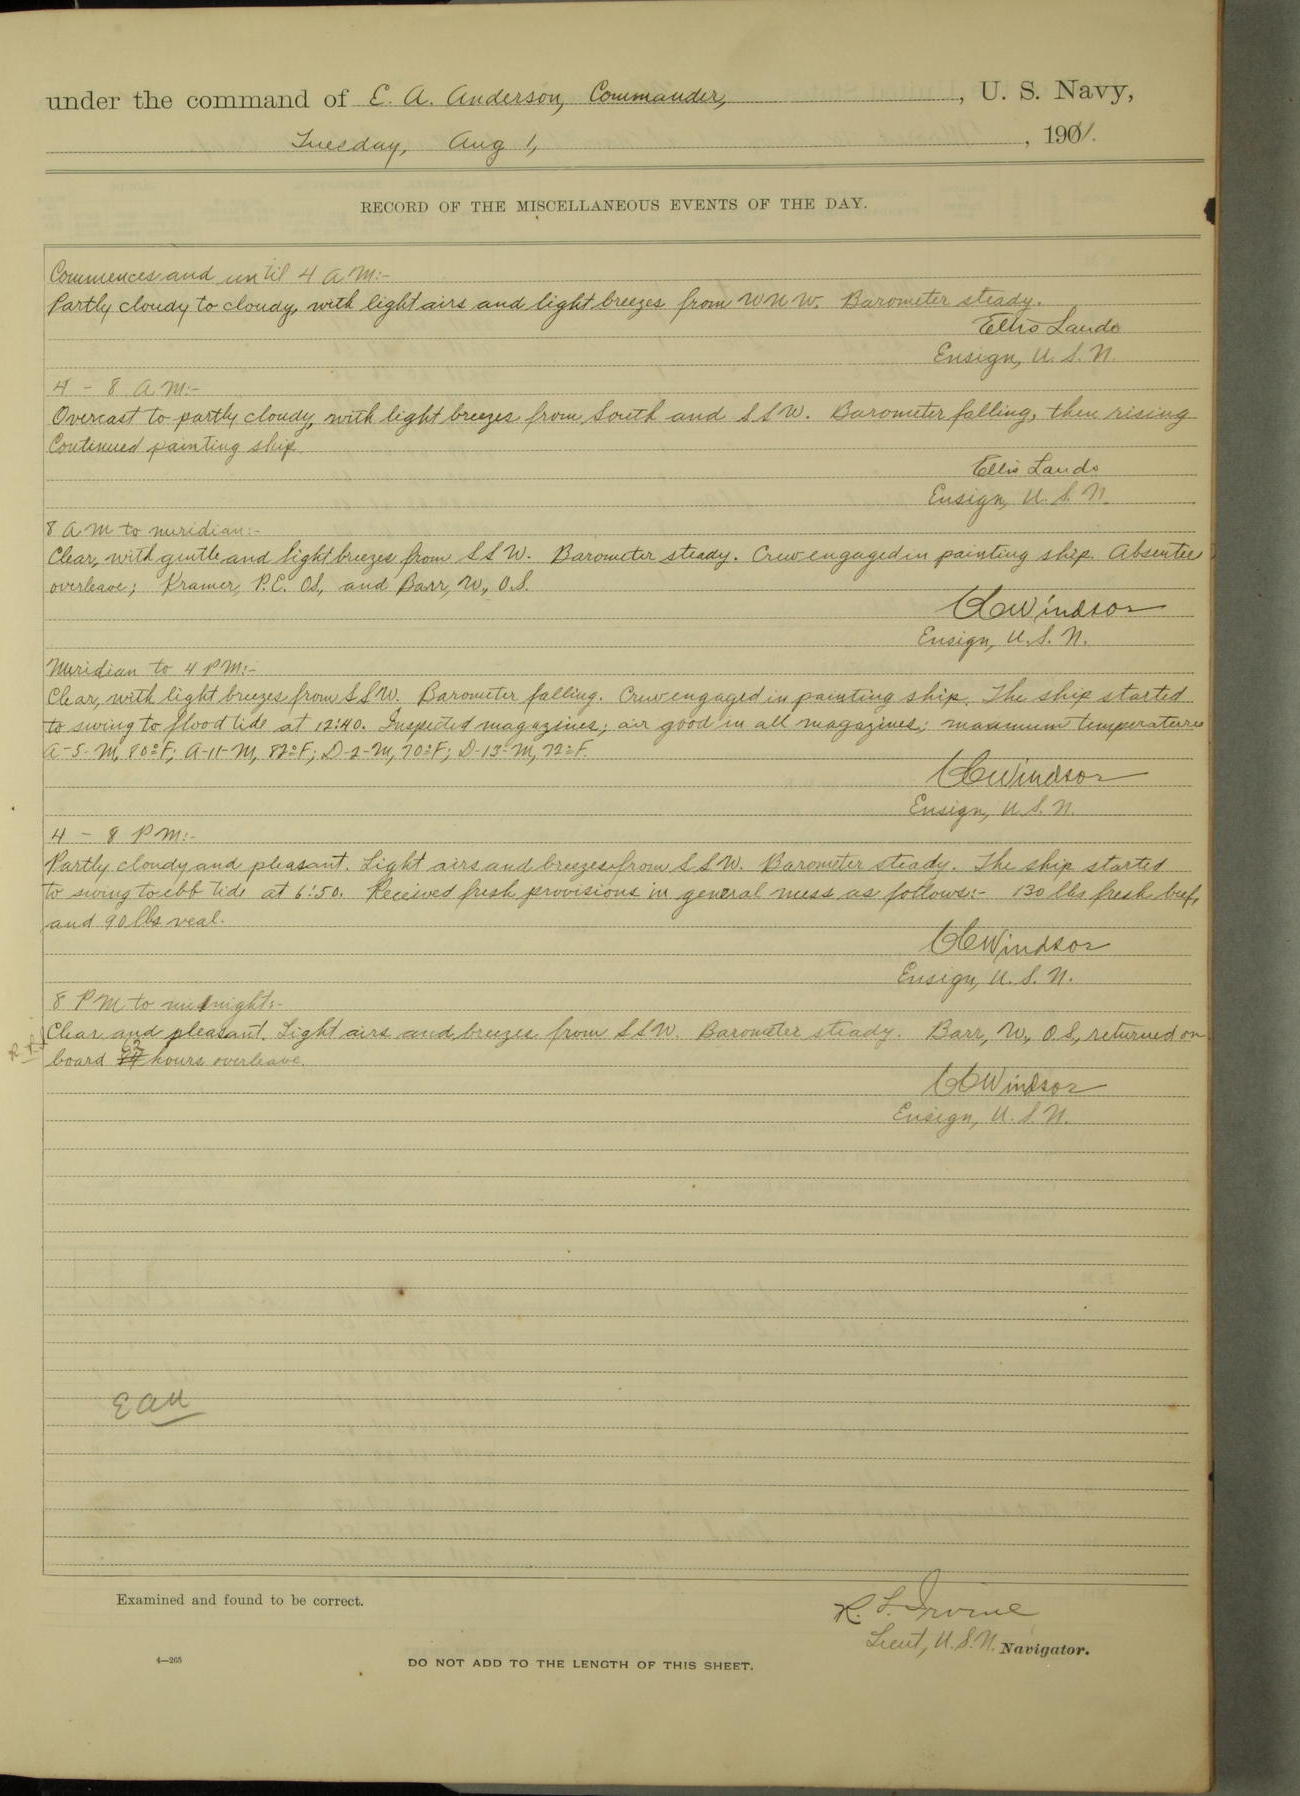 under the command of E. A. Anderson, Commander, , U. S. Navy,
Tuesday, Aug 1, , 1911.
RECORD OF THE MISCELLANEOUS EVENTS OF THE DAY.
Commences and until 4 A M:-
Partly cloudy to cloudy, with light airs and light breezes from W N W. Barometer steady.
Ellis Lando
Ensign, U. S. N.
4 - 8 A M:-
Overcast to partly cloudy, with light breezes from South and S S W. Barometer falling, then rising
Continued painting ship.
Ellis Lando
Ensign, U. S. N.
8 A M to meridian:-
Clear, with gentle and light breezes from S S W. Barometer steady. Crew engaged in painting ship. Absentee
overleave; Kramer, P. E. O.S., and Barr, W., O.S.
C C Windsor
Ensign, U. S. N.
Meridian to 4 P M:-
Clear, with light breezes from S S W. Barometer falling. Crew engaged in painting ship. The ship started
to swing to flood tide at 12:40. Inspected magazines; air good in all magazines; maximum temperatures
A-5-M, 80°F; A-11-M, 82°F; D-2-M, 70°F; D-13-M, 72°F.
C C Windsor
Ensign, U. S. N.
4 - 8 P M:-
Partly cloudy and pleasant. Light airs and breezes from S S W. Barometer steady. The ship started
to swing to ebb tide at 6:50. Received fresh provisions in general mess as follows:- 130 lbs fresh beef,
and 90 lbs veal.
C C Windsor
Ensign, U. S. N.
8 P M to midnight:-
Clear and pleasant. Light airs and breezes from S S W. Barometer steady. Barr, W., O.S., returned on
board 63 hours overleave.
C C Windsor
Ensign, U. S. N.
Examined and found to be correct.
R. L. Irvine
Lieut, U. S. N. Navigator.
4—265
DO NOT ADD TO THE LENGTH OF THIS SHEET.